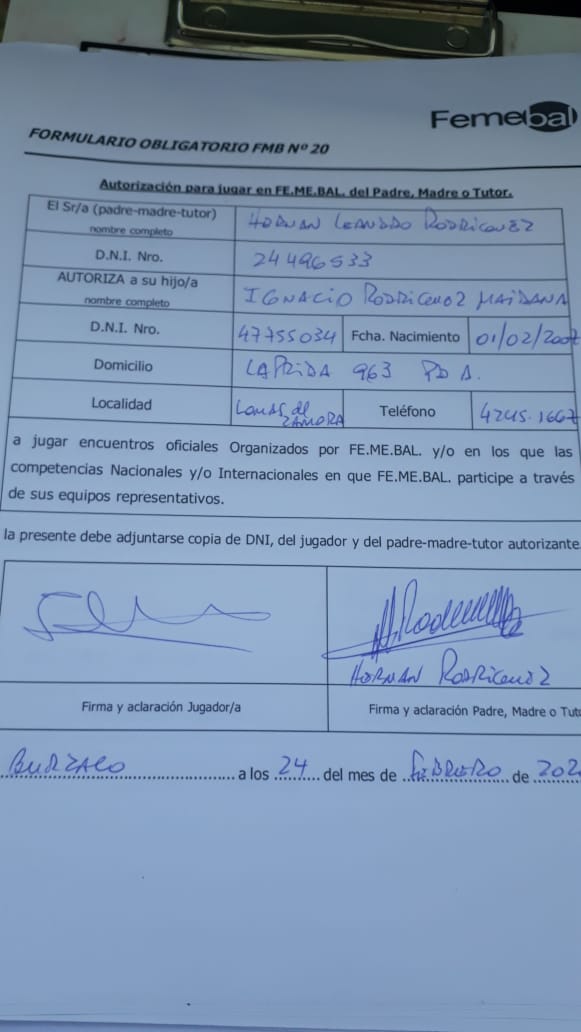 Femebal
FORMULARIO OBLIGATORIO FMB Nº 20
Autorización para jugar en FE.ME.BAL. del Padre, Madre o Tutor.
El Sr/a (padre-madre-tutor) HERNAN LEANDRO RODRIGUEZ
nombre completo
D.N.I. Nro. 24496533
AUTORIZA a su hijo/a IGNACIO RODRIGUEZ MAIDANA
nombre completo
D.N.I. Nro. 47755034 Fcha. Nacimiento 01/02/2007
Domicilio LAPRIDA 963 PB A.
Localidad LOMAS de ZAMORA Teléfono 4245-1667
a jugar encuentros oficiales Organizados por FE.ME.BAL. y/o en los que las
competencias Nacionales y/o Internacionales en que FE.ME.BAL. participe a través
de sus equipos representativos.
la presente debe adjuntarse copia de DNI, del jugador y del padre-madre-tutor autorizante
HERNAN RODRIGUEZ
Firma y aclaración Jugador/a Firma y aclaración Padre, Madre o Tuto
BURZACO a los 24 del mes de FEBRERO de 202